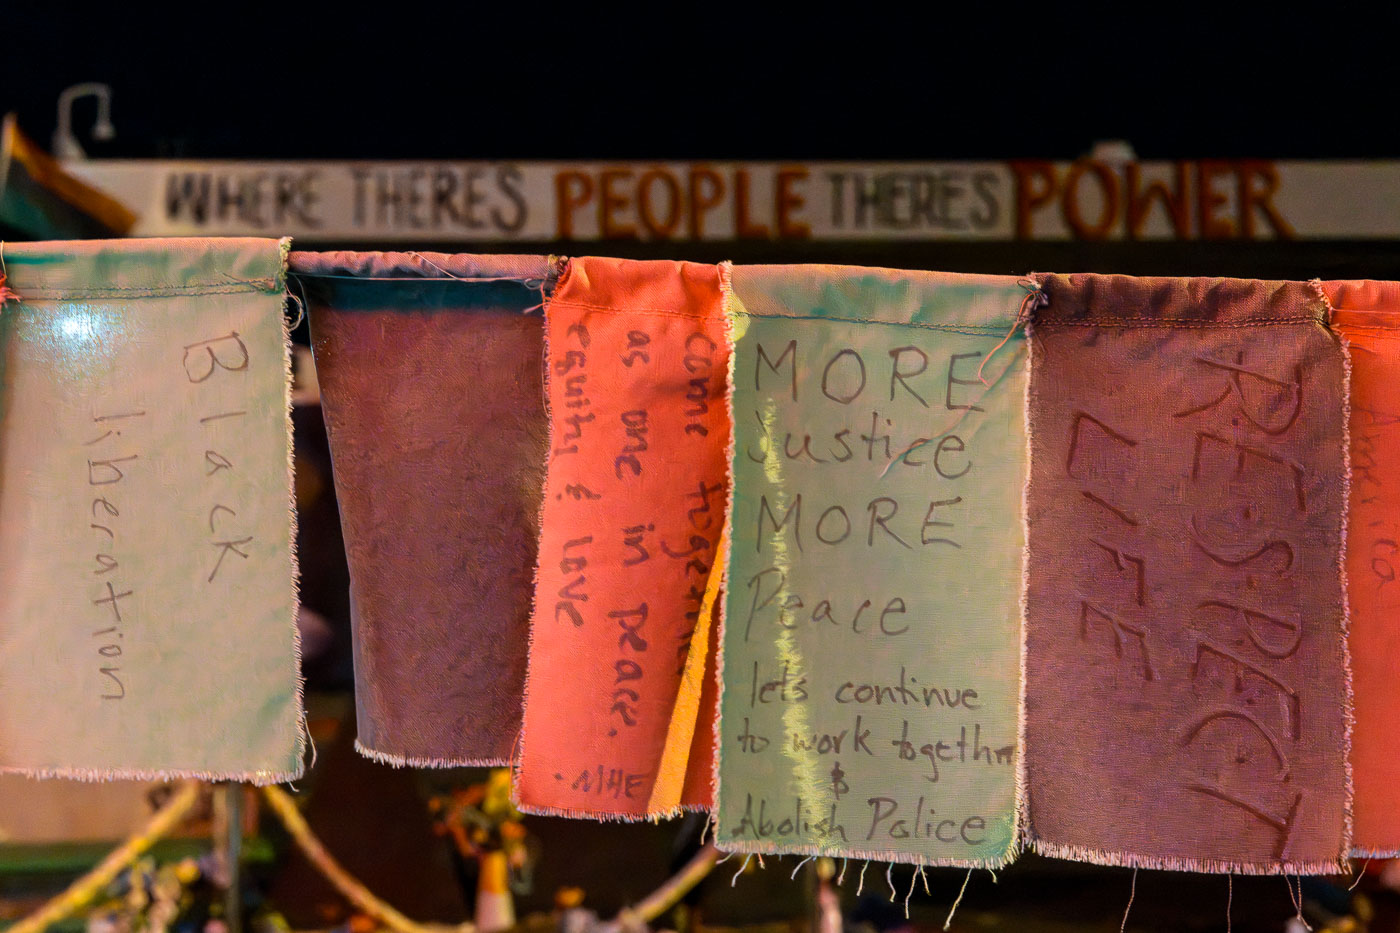 WHERE THERES PEOPLE THERES POWER
Black
liberation
come together
as one in peace.
equity & love
- MHE
MORE
Justice
MORE
Peace
lets continue
to work together
&
Abolish Police
RESPECT
LIFE
America